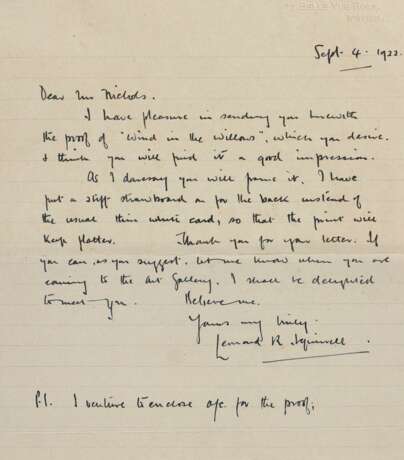 Sept. 4. 1922.
Dear Mr Nichols.
I have pleasure in sending you herewith
the proof of "Wind in the Willows", which you desire.
I think you will find it a good impression.
As I daresay you will frame it, I have
put a stiff strawboard on for the back instead of
the usual thin white card, so that the print will
keep flatter. Thank you for your letter. If
you can, as you suggest, let me know when you are
coming to the Art Gallery, I shall be delighted
to meet you. Believe me.
Yours very truly.
Leonard R. Squirrell.
P.S. I venture to enclose a/c. for the proof.